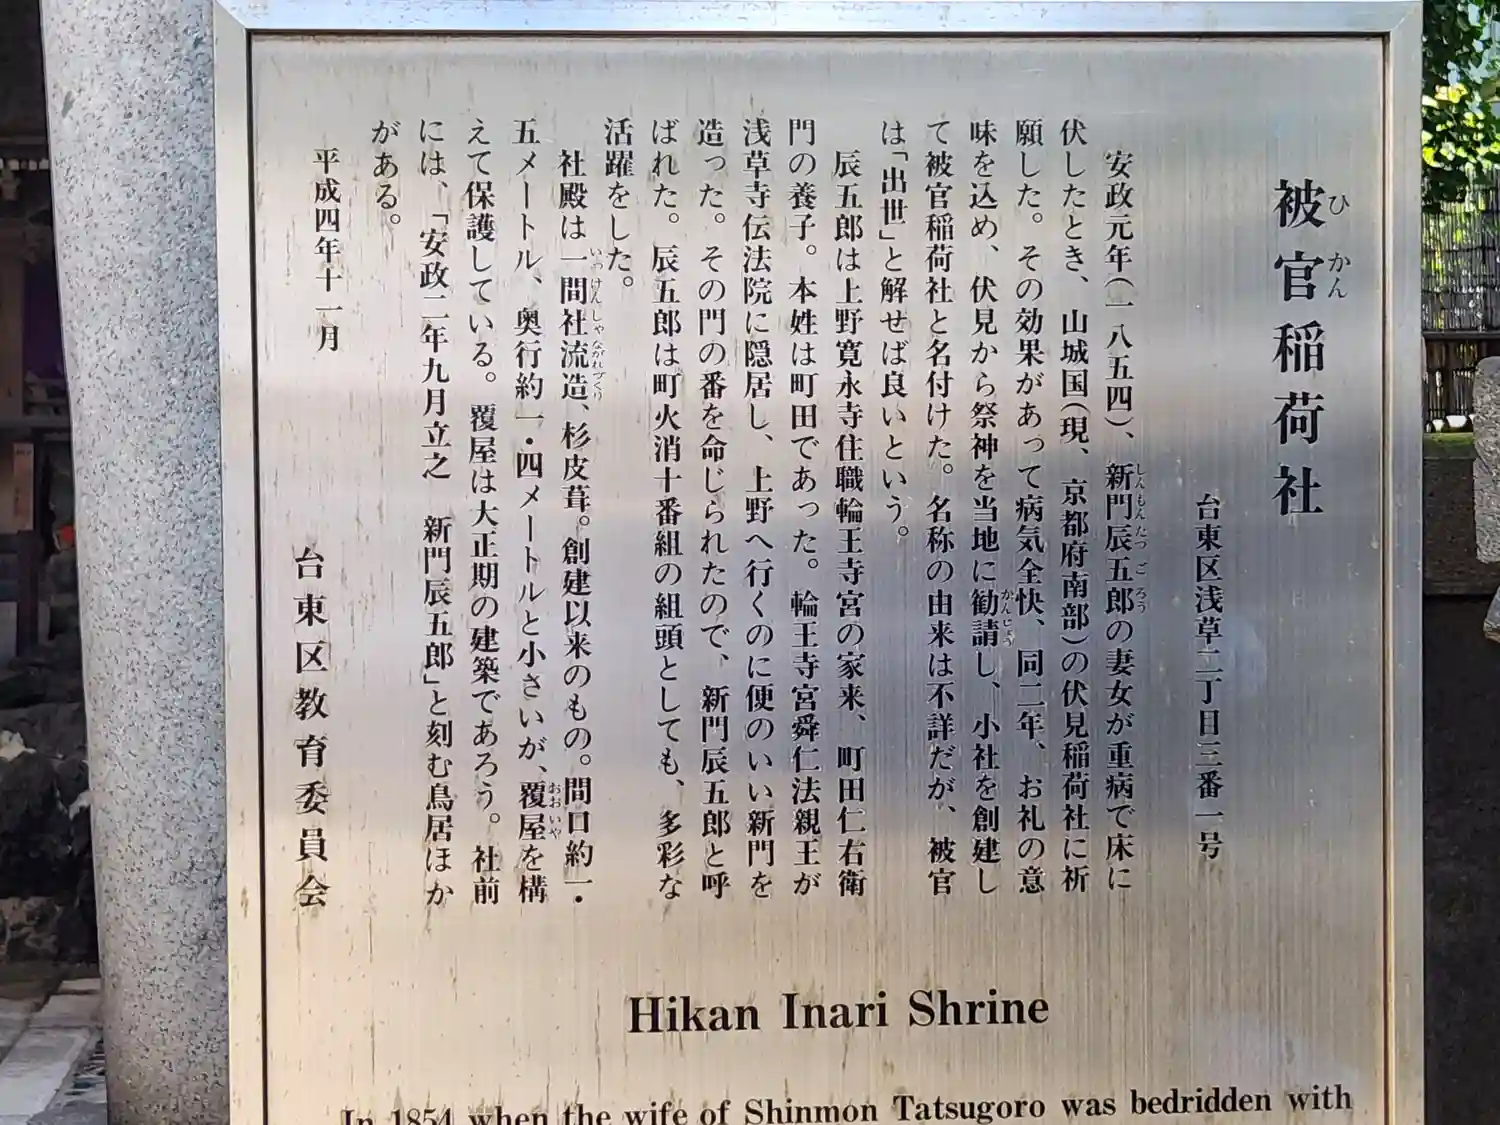 被官稲荷社
ひかん
台東区浅草二丁目三番一号
安政元年(一八五四)、新門辰五郎の妻女が重病で床に
しんもんたつごろう
伏したとき、山城国(現、京都府南部)の伏見稲荷社に祈
願した。その効果があって病気全快、同二年、お礼の意
味を込め、伏見から祭神を当地に勧請し、小社を創建し
かんじょう
て被官稲荷社と名付けた。名称の由来は不詳だが、被官
は「出世」と解せば良いという。
辰五郎は上野寛永寺住職輪王寺宮の家来、町田仁右衛
門の養子。本姓は町田であった。輪王寺宮舜仁法親王が
浅草寺伝法院に隠居し、上野へ行くのに便のいい新門を
造った。その門の番を命じられたので、新門辰五郎と呼
ばれた。辰五郎は町火消十番組の組頭としても、多彩な
活躍をした。
社殿は一間社流造、杉皮葺。創建以来のもの。間口約一・
いっけんしゃながれづくり
五メートル、奥行約一・四メートルと小さいが、覆屋を構
おおいや
えて保護している。覆屋は大正期の建築であろう。社前
には、「安政二年九月立之 新門辰五郎」と刻む鳥居ほか
がある。
平成四年十一月
台東区教育委員会
Hikan Inari Shrine
In 1854 when the wife of Shinmon Tatsugoro was bedridden with